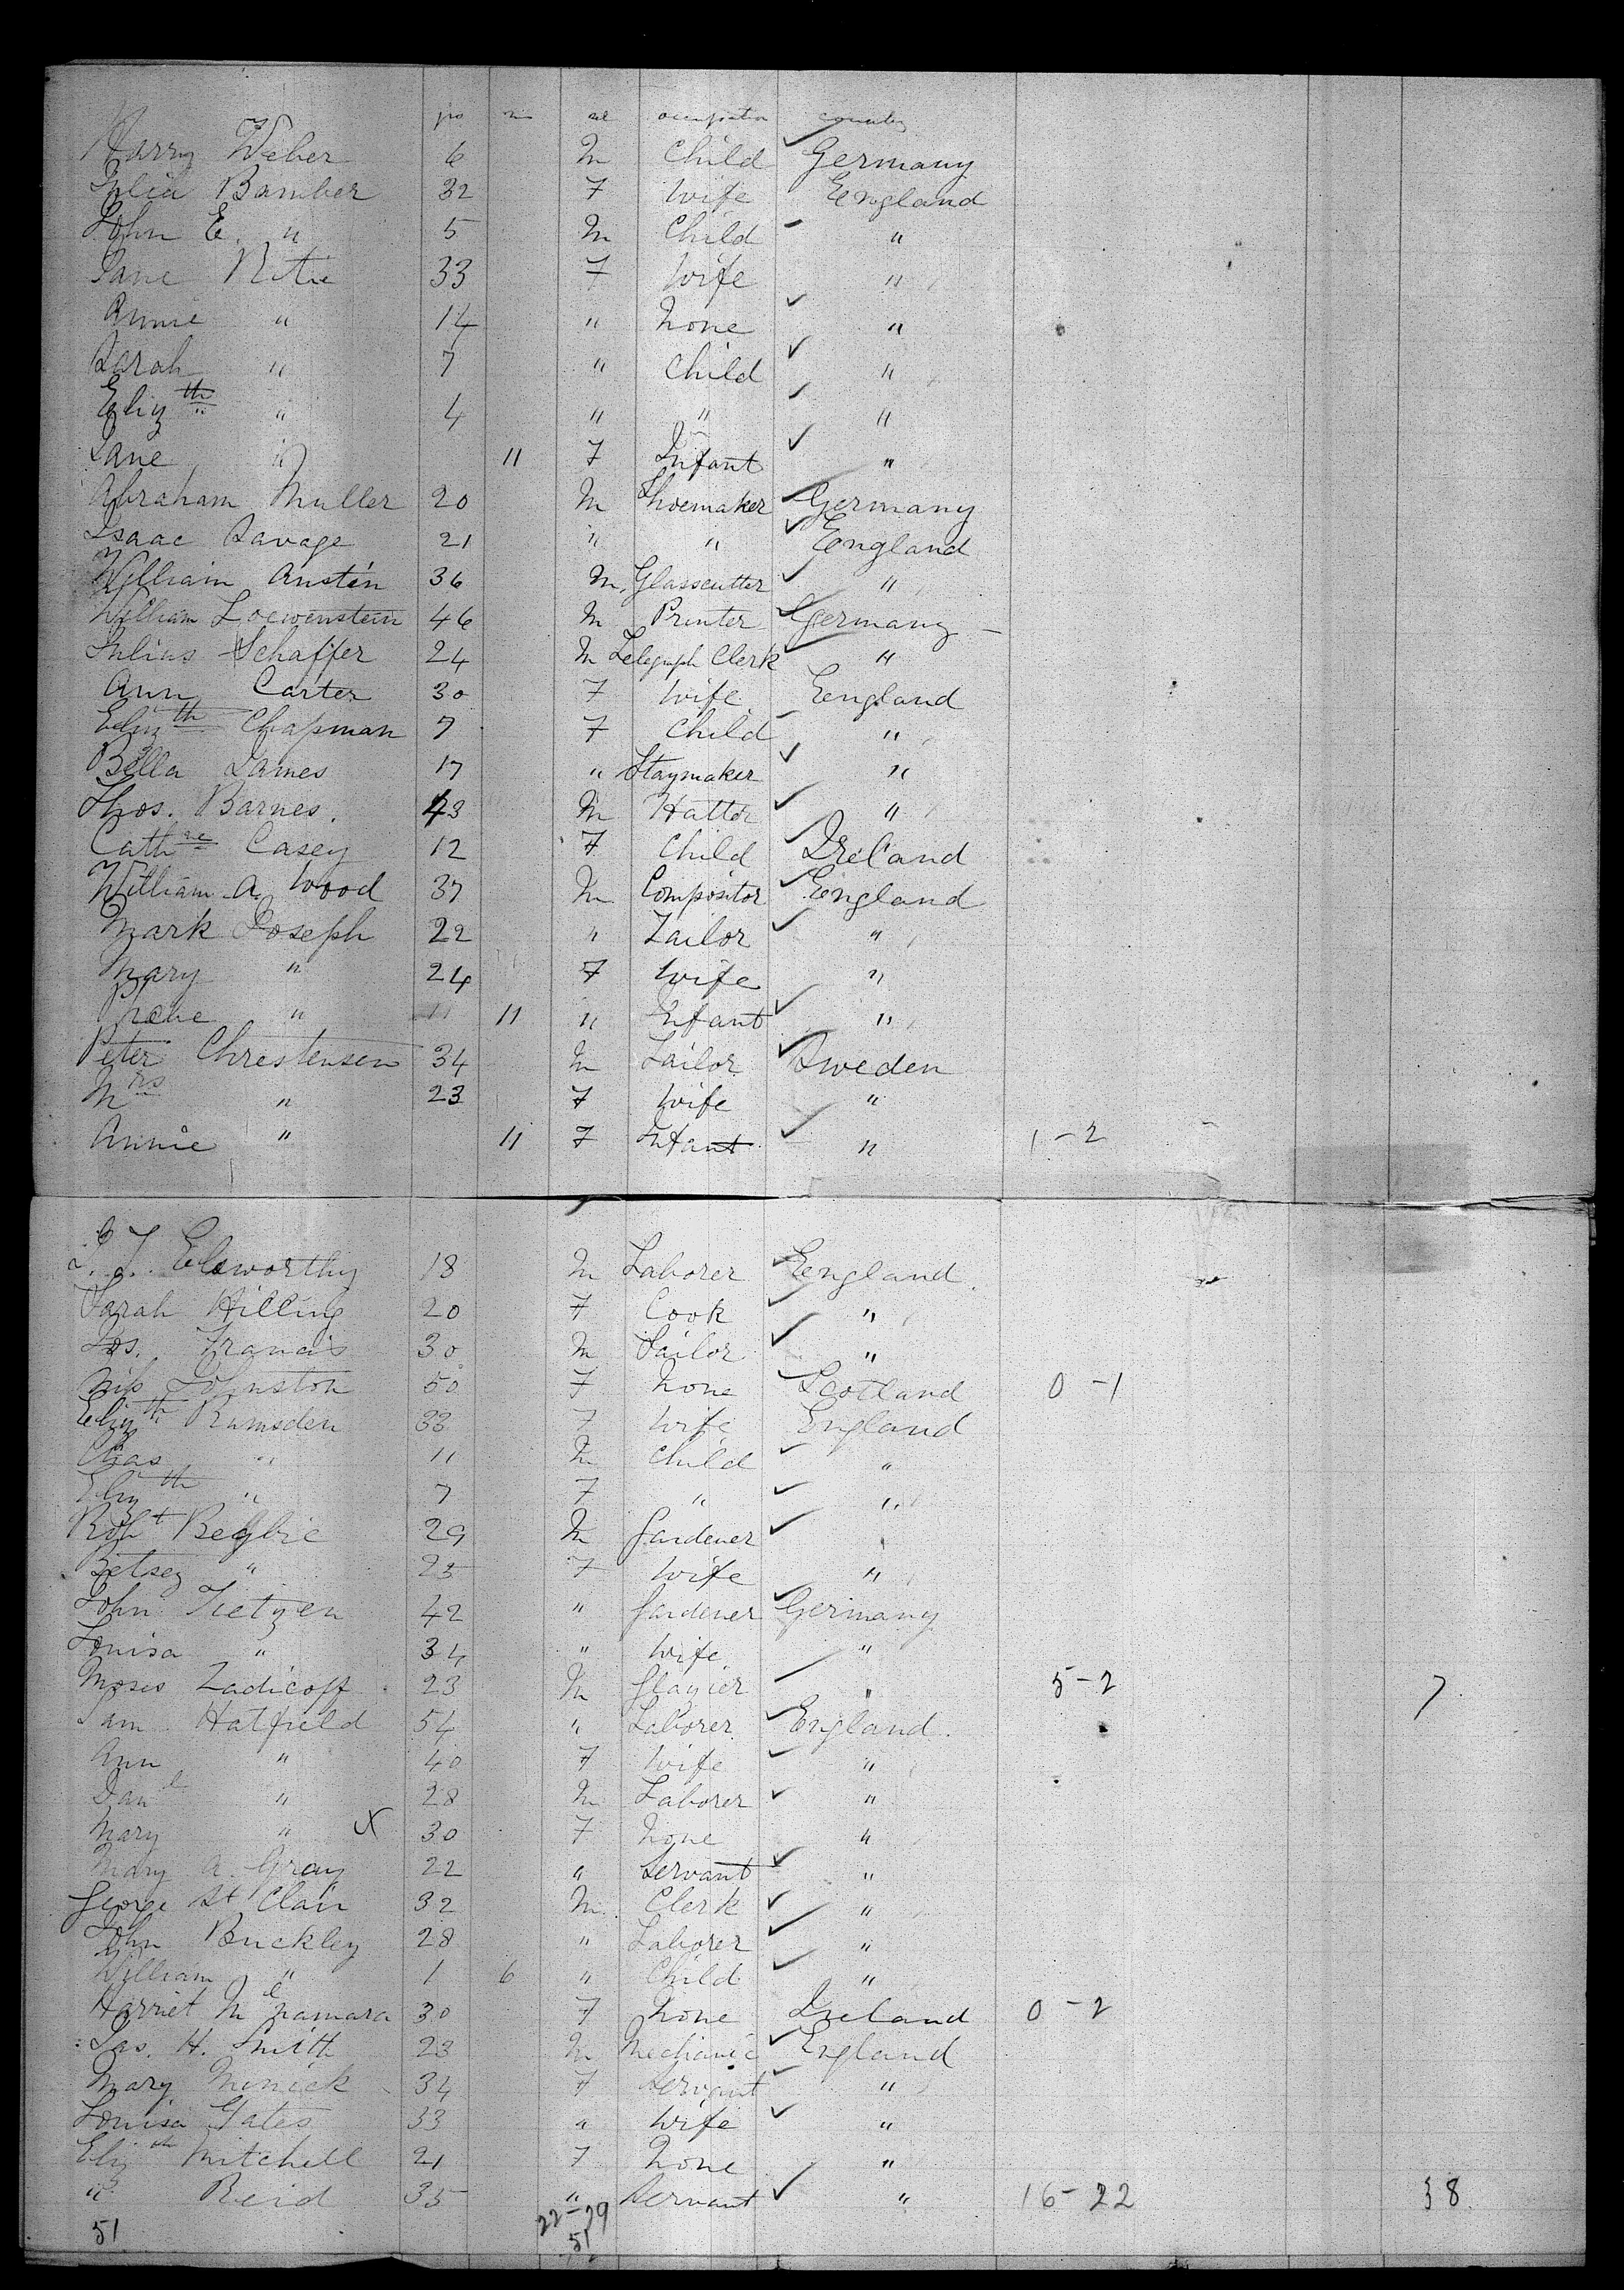 yrs m sex occupation country
Harry Weber 6 M Child Germany
Julia Bamber 32 F Wife England
John E. " 5 M Child "
Jane 33 F Wife "
Annie " 14 " None "
Sarah " 7 " Child "
Elizth " 4 " " "
Jane " 11 F Infant "
Abraham Muller 20 M Shoemaker Germany
Isaac Savage 21 " " England
William Austin 36 M. Glasscutter "
William Loewenstein 46 M Printer Germany
Julius Schaffer 24 M Telegraph Clerk "
Ann Carter 30 F Wife England
Elizth Chapman 7 F Child "
Bella James 17 " Staymaker "
Thos. Barnes. 43 M Hatter "
Cathne Casey 12 F Child Ireland
William A. Wood 37 M Compositor England
Mark Joseph 22 " Tailor "
Mary " 24 F Wife "
" 11 " Infant "
Peter Chrestensen 34 M Tailor Sweden
Mrs " 23 F Wife "
Annie " 11 F Infant " 1-2
Elsworthy 18 M Laborer England
Sarah Hilling 20 F Cook "
Jos. Francis 30 M Tailor "
Johnston 50 F None Scotland 0-1
Elizth Ramsden 33 F Wife England
Chas " 11 M Child "
Elizth " 7 F " "
Robt Begbie 29 M Gardener "
Betsey " 25 F Wife "
John Tietzen 42 " Gardener Germany
Louisa " 34 " Wife "
Moses Zadicoff 23 M Glazier " 5-2 7
Sam Hatfield 54 " Laborer England
Ann " 40 F Wife "
Danl " 28 M Laborer "
Mary " X 30 F None "
Mary A. Gray 22 " Servant "
George St Clair 32 M Clerk "
John Buckley 28 " Laborer "
William " 1 6 " Child "
Harriet Mcnamara 30 F None Ireland 0-2
Jas. H. Smith 23 M Mechanic England
Mary Minick 34 F Servant "
Louisa Yates 33 " Wife "
Elizth Mitchell 21 F None "
" Reid 35 " Servant " 16-22 38
51 22-29
51